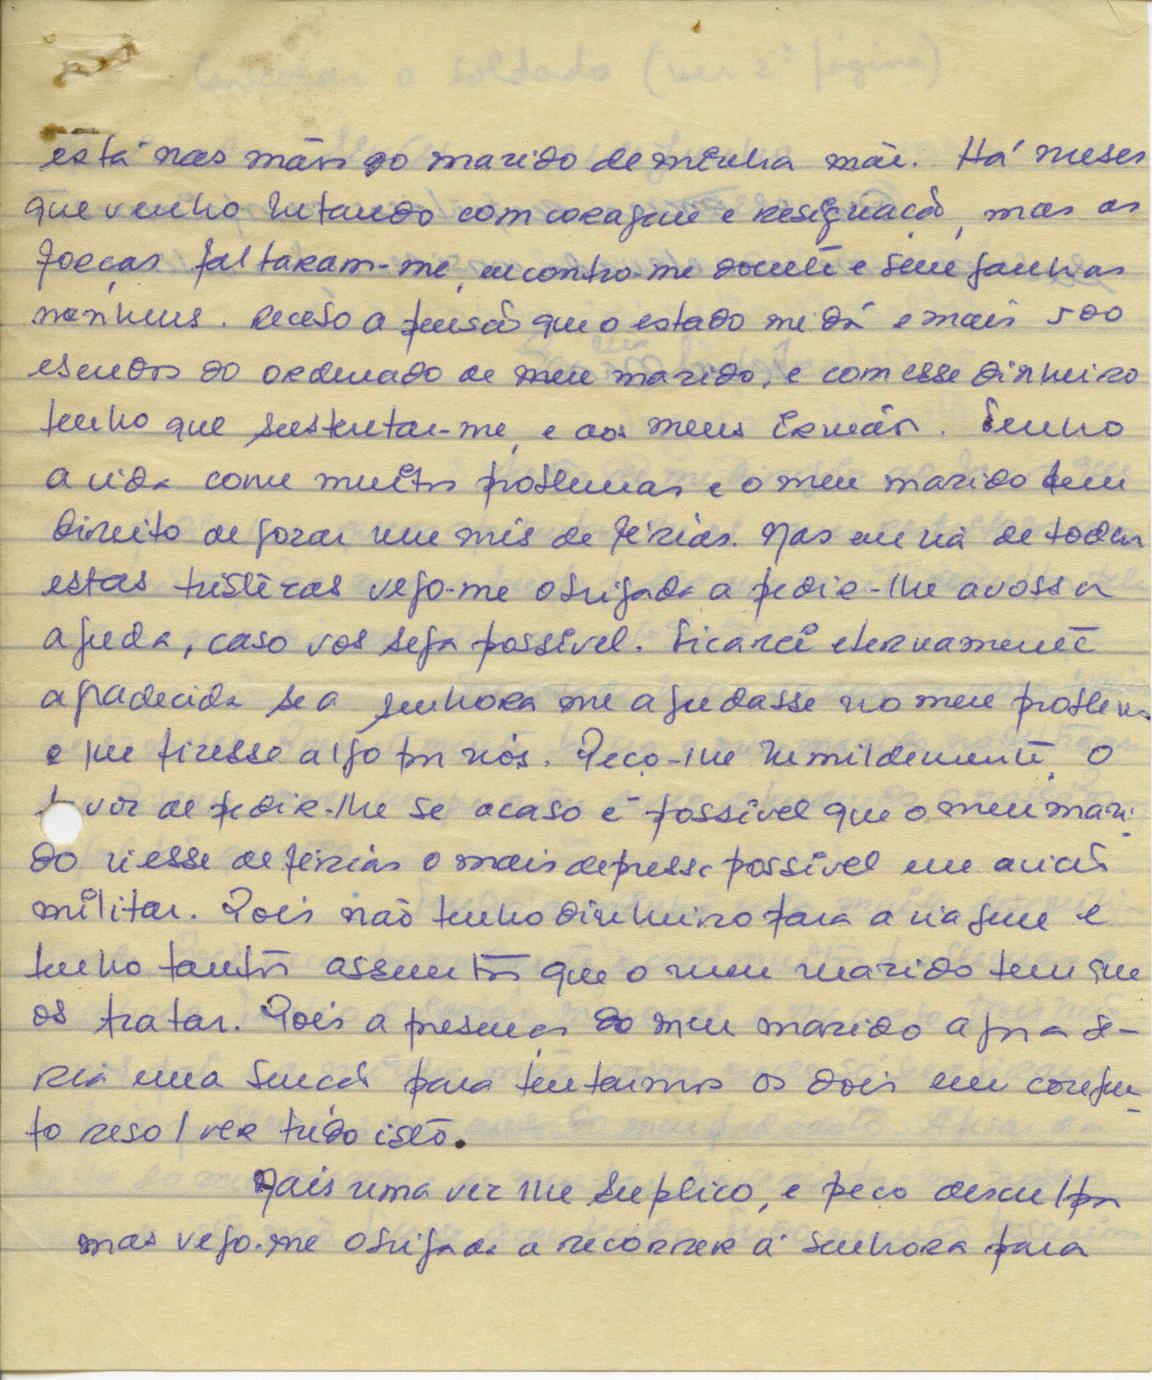 está nas mãos do marido de minha mãe. Há meses
que venho lutando com coragem e resignação, mas as
forças faltaram-me, encontro-me doente e sem ganhos
nenhuns. Recebo a pensão que o estado me dá e mais 500
escudos do ordenado de meu marido, e com esse dinheiro
tenho que sustentar-me, e aos meus irmãos. Tenho
a vida com muitos problemas e o meu marido tem
direito de gozar um mês de férias. Mas em via de todas
estas tristezas vejo-me obrigada a pedir-lhe a vossa
ajuda, caso vos seja possível. Ficarei eternamente
agradecida se a senhora me ajudasse no meu problema
e que fizesse algo por nós. Peço-lhe humildemente, o
favor de pedir-lhe se acaso é possível que o meu mari-
do viesse de férias o mais depressa possível em avião
militar. Pois não tenho dinheiro para a viagem e
tenho tantos assuntos que o meu marido tem que
os tratar. Pois a presença do meu marido agora se-
ria uma benção para tentarmos os dois em conjun-
to resolver tudo isto.
Mais uma vez lhe suplico, e peço desculpa
mas vejo-me obrigada a recorrer à senhora para